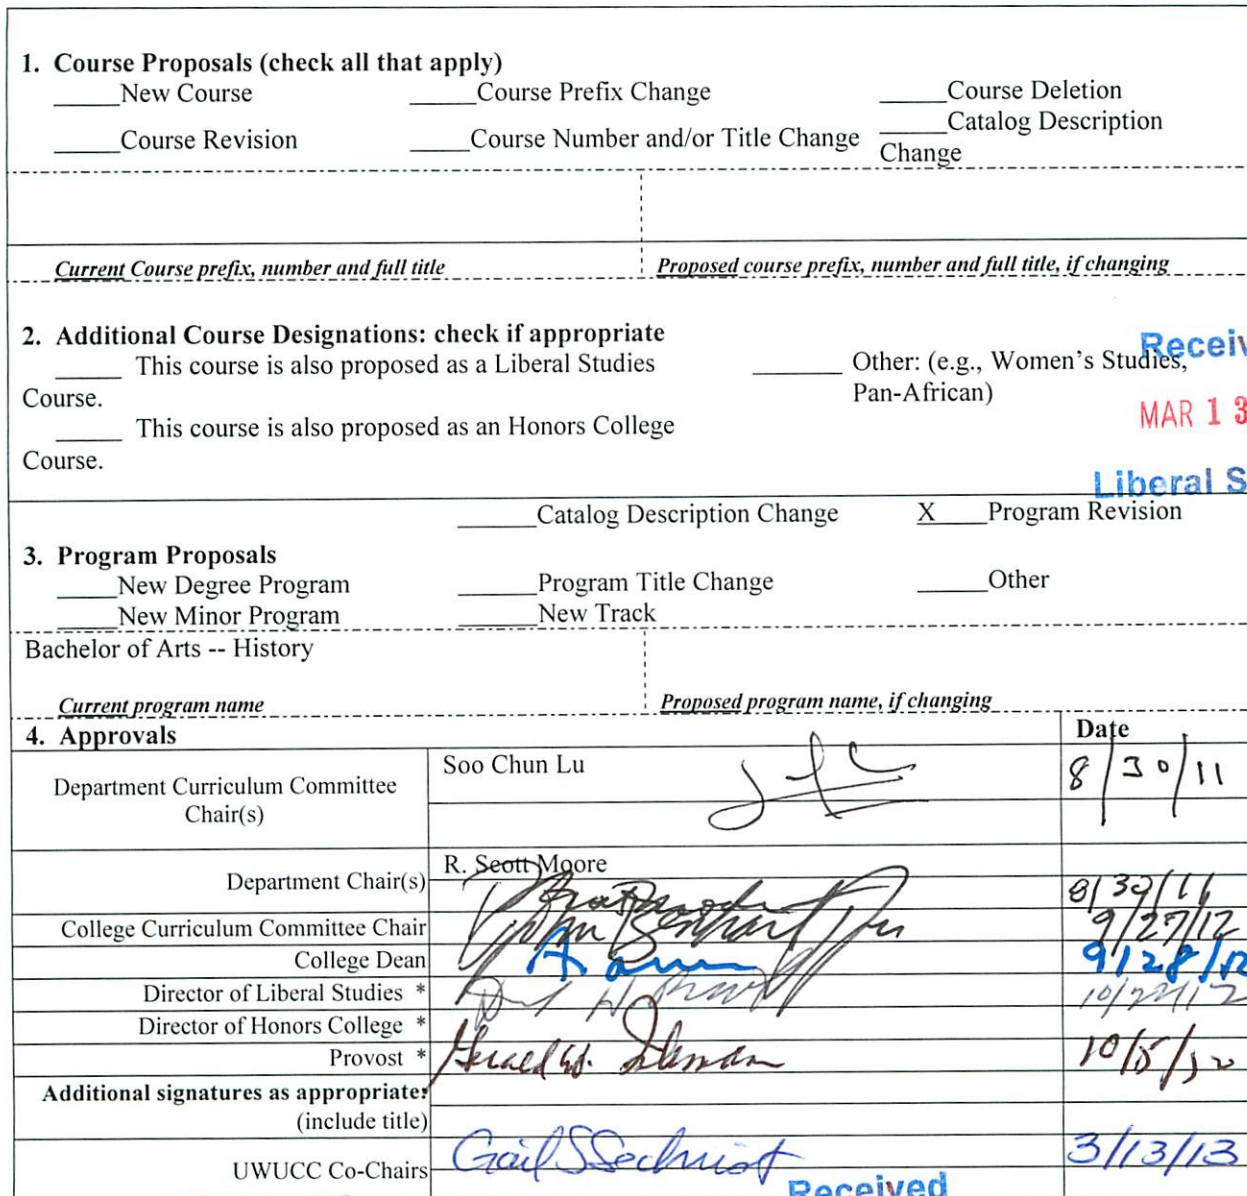 1. Course Proposals (check all that apply)
_____New Course _____Course Prefix Change _____Course Deletion
_____Course Revision _____Course Number and/or Title Change _____Catalog Description
Change
Current Course prefix, number and full title Proposed course prefix, number and full title, if changing
2. Additional Course Designations: check if appropriate
_____ This course is also proposed as a Liberal Studies _____ Other: (e.g., Women's Studies,
Course. Pan-African)
_____ This course is also proposed as an Honors College
Course.
Receiv
MAR 13
Liberal S
_____Catalog Description Change X____Program Revision
3. Program Proposals
_____New Degree Program _____Program Title Change _____Other
_____New Minor Program _____New Track
Bachelor of Arts -- History
Current program name Proposed program name, if changing
4. Approvals Date
Department Curriculum Committee Chair(s) Soo Chun Lu 8/30/11
Department Chair(s) R. Scott Moore 8/30/11
College Curriculum Committee Chair 9/27/12
College Dean 9/28/12
Director of Liberal Studies *
Director of Honors College *
Provost * 10/5/12
Additional signatures as appropriate:
(include title)
UWUCC Co-Chairs Gail S Sechrist 3/13/13
Received